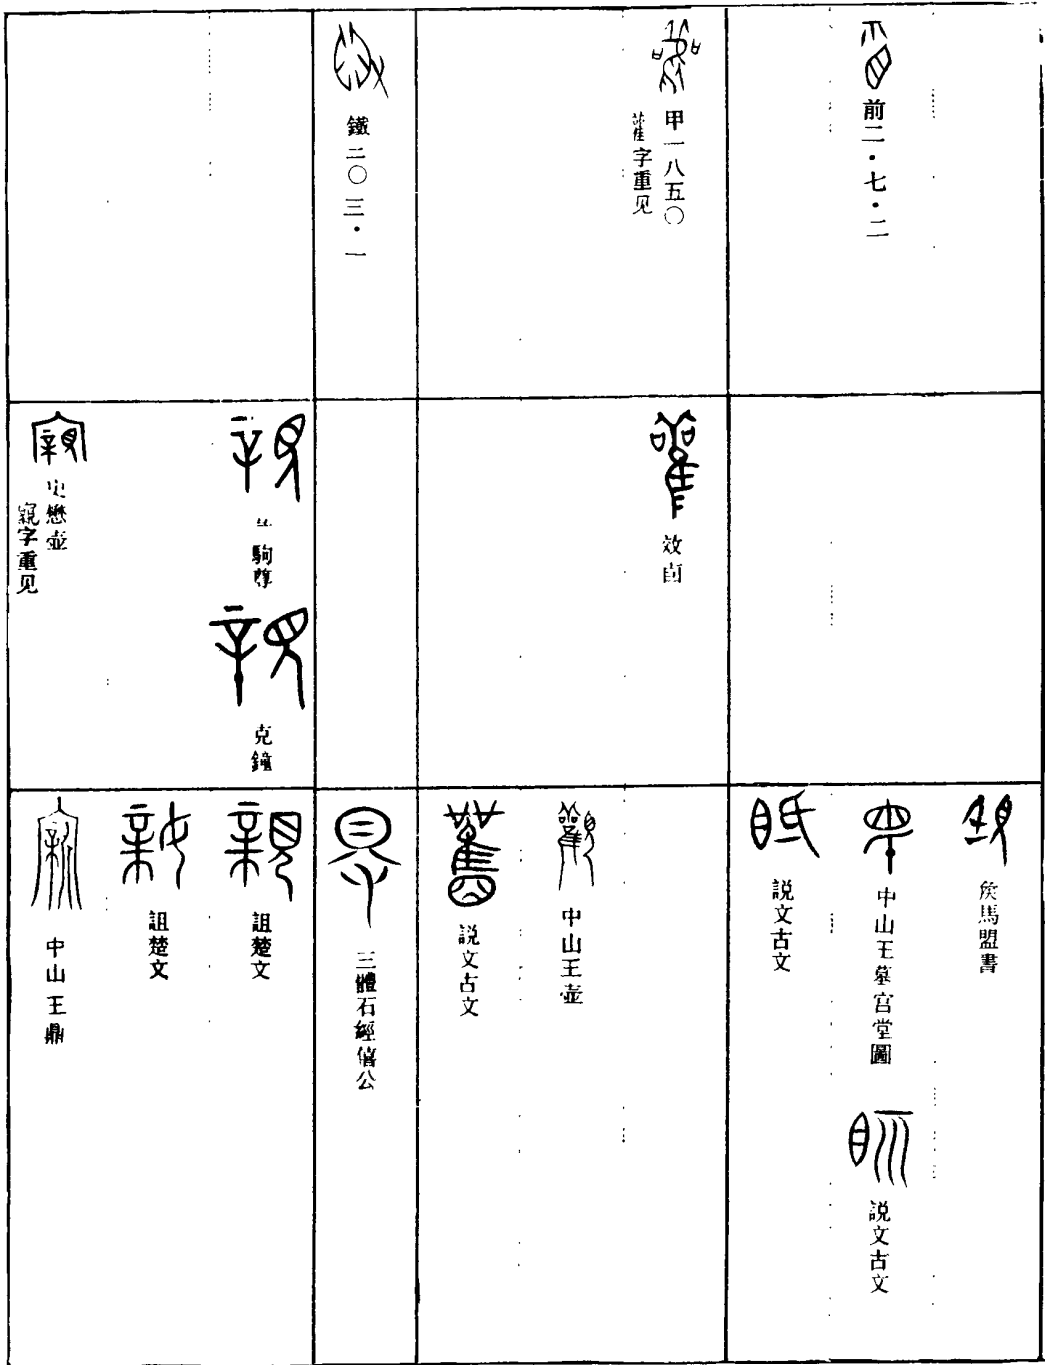 前二・七・二
甲一八五〇
雚字重见
鐵二〇三・一
效卣
駒尊
克鐘
史懋壺
窺字重见
矦馬盟書
中山王墓宫堂圖
説文古文
説文古文
中山王壺
説文古文
三體石經僖公
詛楚文
詛楚文
中山王鼎